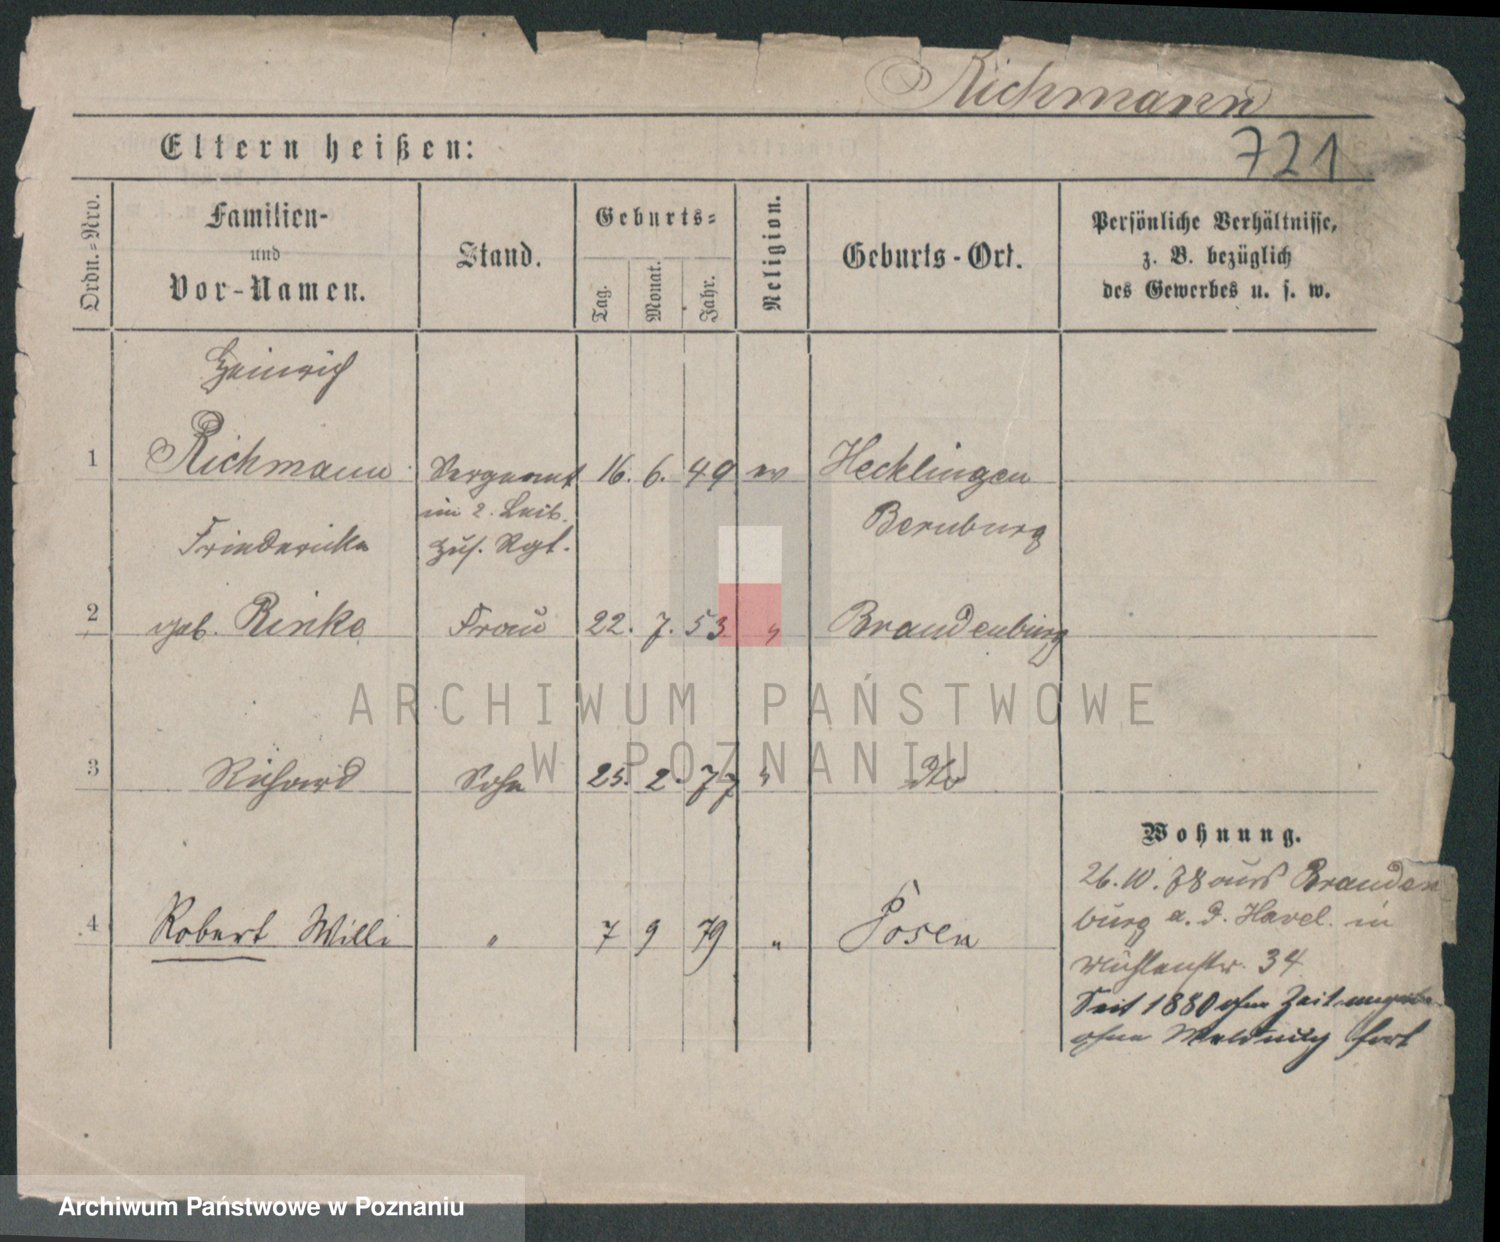 Richmann
721
Eltern heißen:
Ordn.-Nro.
Familien-
und
Vor-Namen.
Stand.
Geburts-
Tag.
Monat.
Jahr.
Religion.
Geburts-Ort.
Persönliche Verhältnisse,
z. B. bezüglich
des Gewerbes u. s. w.
Heinrich
1 Richmann Sergeant 16. 6. 49 ev Hecklingen
im 2. Leib. Bernburg
Friedericke Hus. Rgt.
2 geb. Rinke Frau 22. 7. 53 " Brandenburg
ARCHIWUM PAŃSTWOWE
W POZNANIU
3 Richard Sohn 25. 2. 77 " dto
Wohnung.
26. 10. 78 aus Branden
burg a. d. Havel in
4 Robert Willi " 7 9 79 " Posen
Mühlenstr. 34
Seit 1880 ohne Zeitangabe
ohne Meldung fort
Archiwum Państwowe w Poznaniu